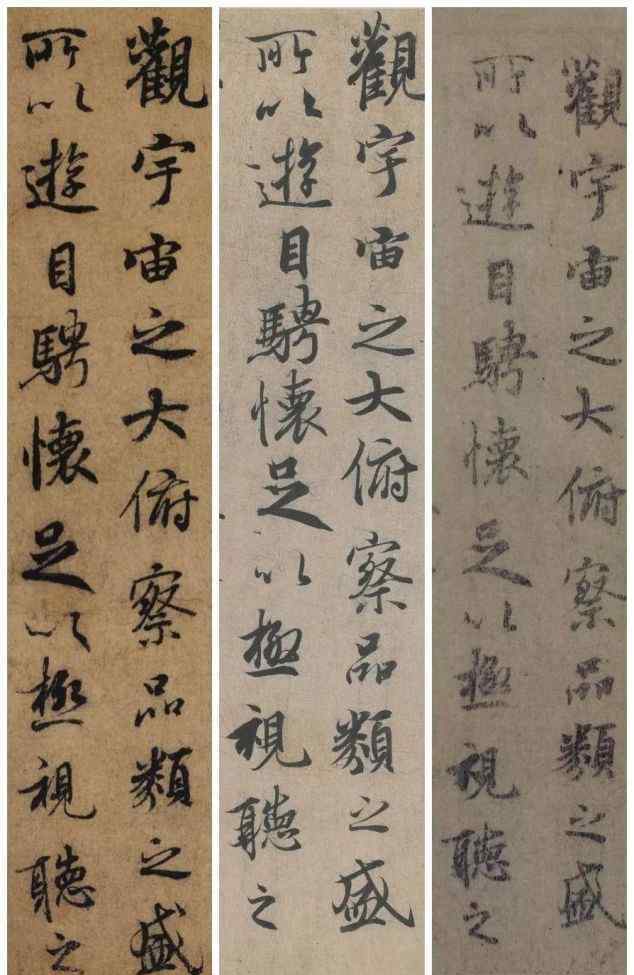 觀宇宙之大俯察品類之盛
所以遊目騁懷足以極視聽之
觀宇宙之大俯察品類之盛
所以遊目騁懷足以極視聽之
觀宇宙之大俯察品類之盛
所以遊目騁懷足以極視聽之